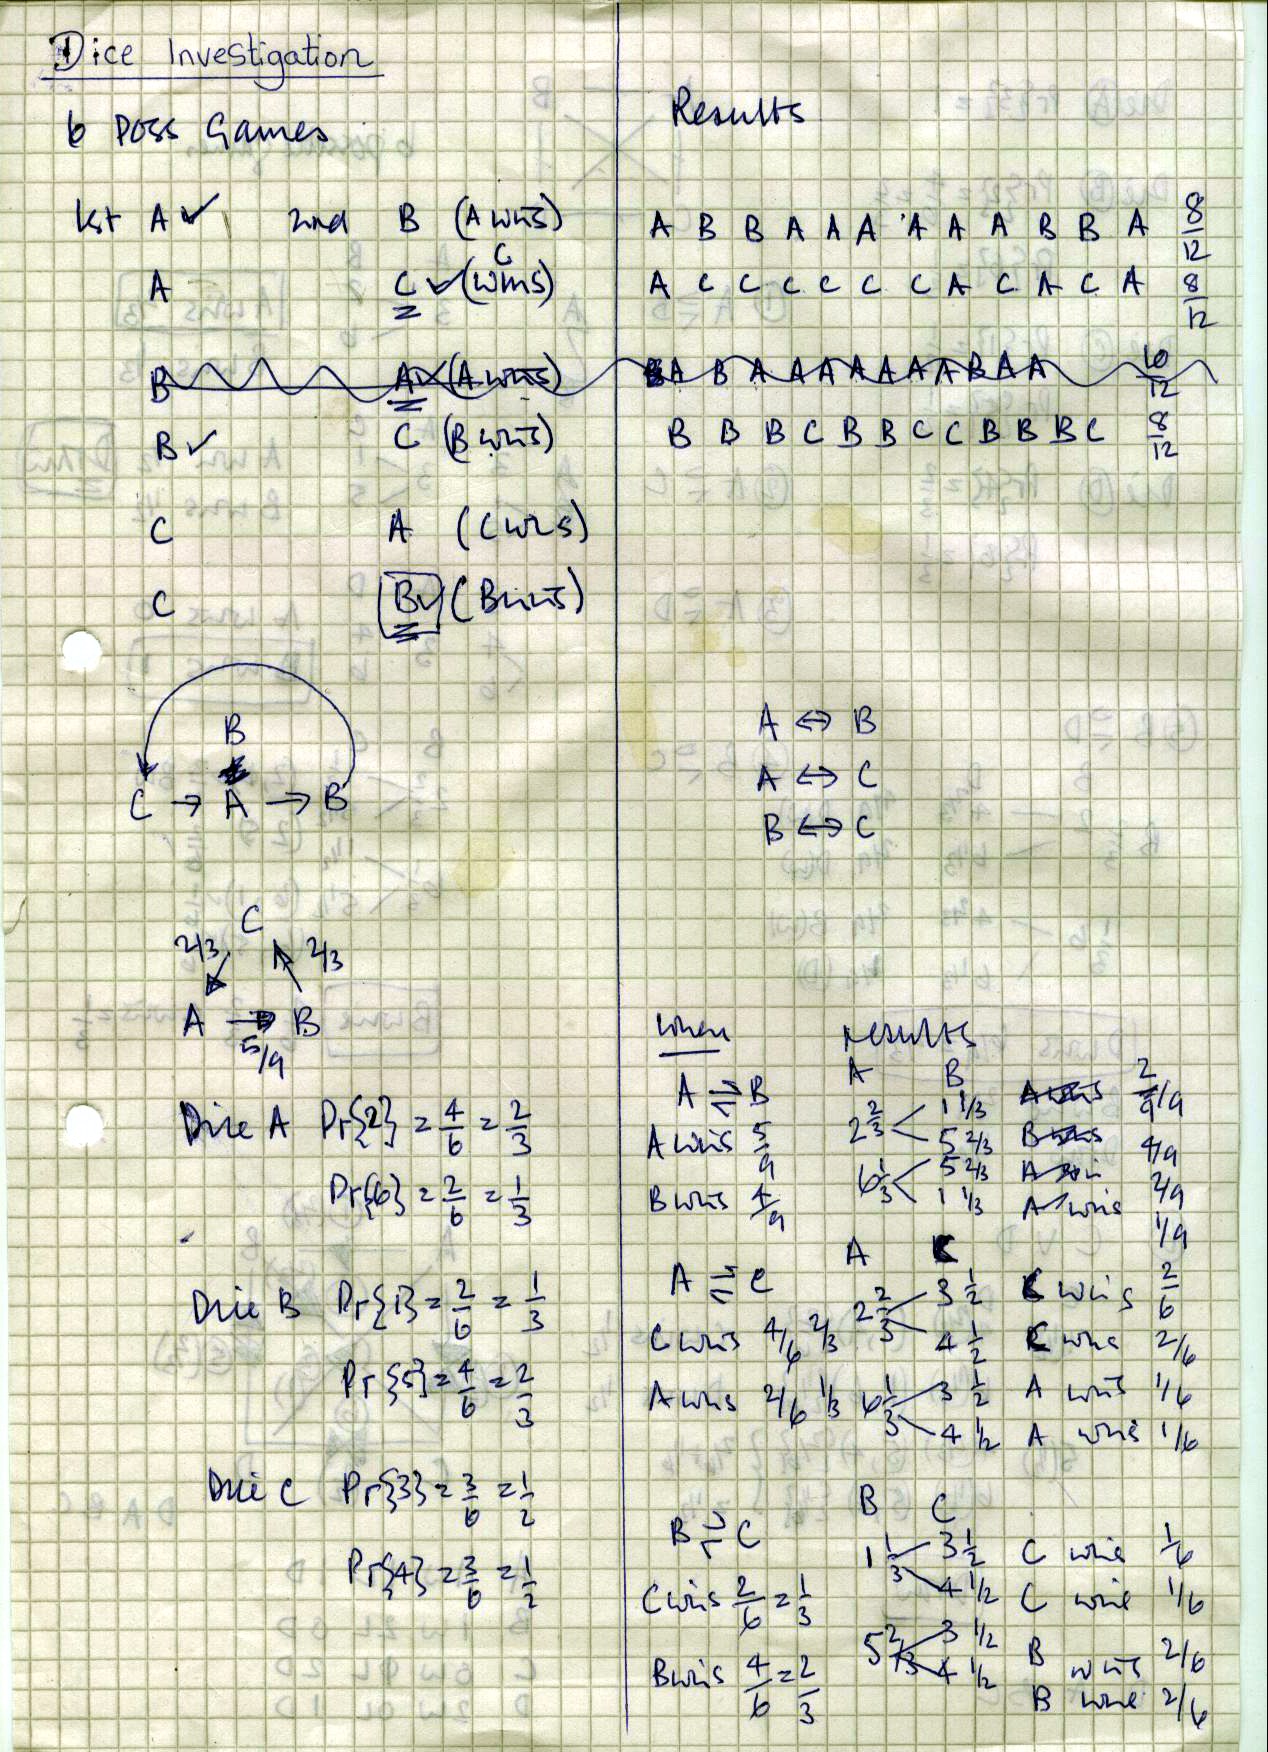 Dice Investigation
6 Poss Games
Results
1st A ✓ 2nd B (A wins) A B B A A A A A A B B A 8/12
A C ✓ (C wins) A C C C C C C A C A C A 8/12
B A (A wins) A B A A A A A A A B A A 10/12
B ✓ C (B wins) B B B C B B C C B B B C 8/12
C A (C wins)
C B ✓ (B wins)
B
C → A → B
A ↔ B
A ↔ C
B ↔ C
C
2/3 2/3
A → B
5/9
Dice A Pr{2} = 4/6 = 2/3
Pr{6} = 2/6 = 1/3
Dice B Pr{1} = 2/6 = 1/3
Pr{5} = 4/6 = 2/3
Dice C Pr{3} = 3/6 = 1/2
Pr{4} = 3/6 = 1/2
when results
A B
A ⇌ B
A wins 5/9
B wins 4/9
2 2/3 1 1/3 A wins 2/9
5 2/3 B wins 4/9
6 1/3 5 2/3 A win 2/9
1 1/3 A wins 1/9
A C
A ⇌ C
C wins 4/6 2/3
A wins 2/6 1/3
2 2/3 3 1/2 C wins 2/6
4 1/2 C wins 2/6
6 1/3 3 1/2 A wins 1/6
4 1/2 A wins 1/6
B C
B ⇌ C
C wins 2/6 = 1/3
B wins 4/6 = 2/3
1 1/3 3 1/2 C wins 1/6
4 1/2 C wins 1/6
5 2/3 3 1/2 B wins 2/6
4 1/2 B wins 2/6